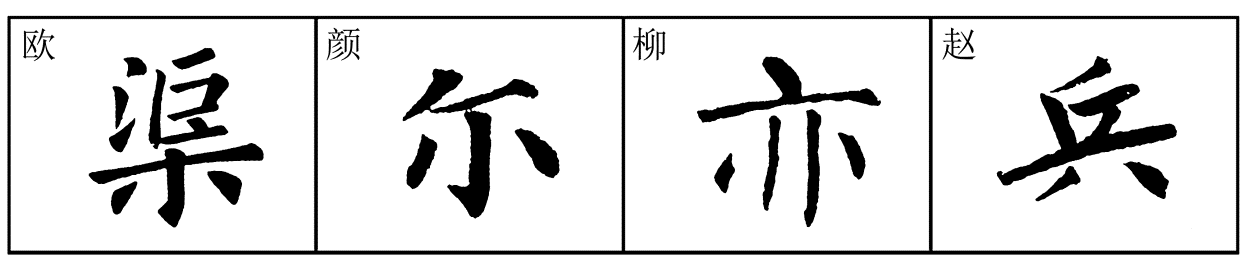 欧
渠
颜
尓
柳
亦
赵
兵